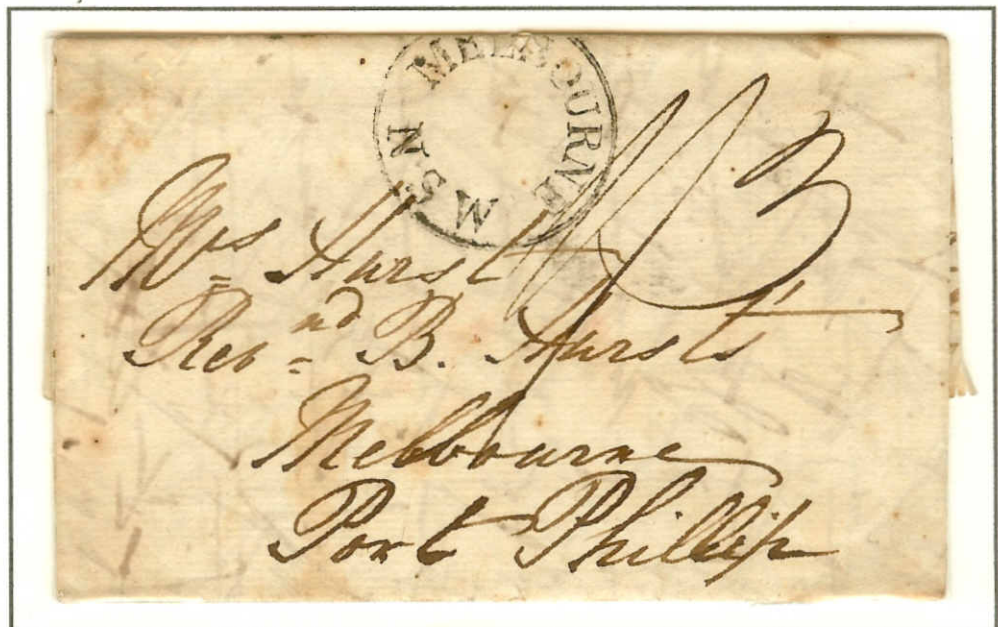 MELBOURNE
N.S.W
1/3
Mrs Hurst
Revnd B. Hursts'
Melbourne
Port Phillip